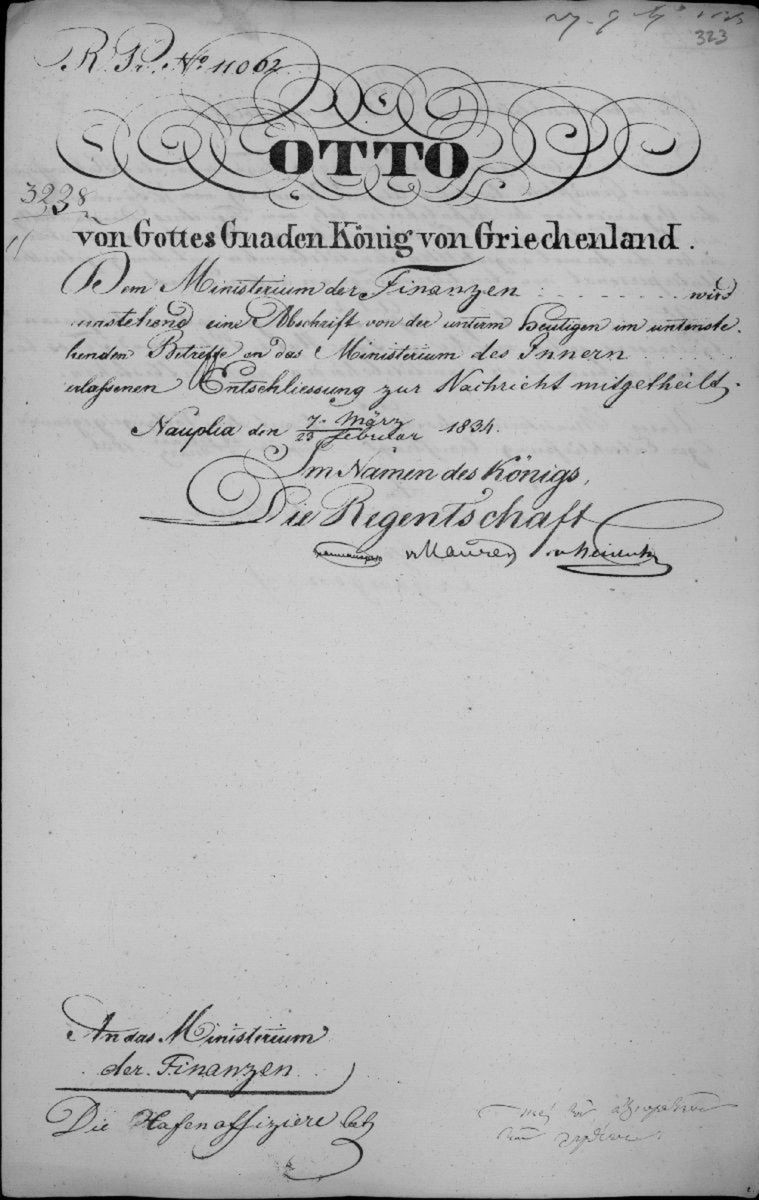 323
R. Pr. No 11062
OTTO
3228
von Gottes Gnaden König von Griechenland.
Dem Ministerium der Finanzen wird
umstehend eine Abschrift von der unterm Heutigen im untenste-
henden Betreffe an das Ministerium des Innern
erlassenen Entschliessung zur Nachricht mitgetheilt.
Nauplia den 7. März / 23 Februar 1834.
Im Namen des Königs,
Die Regentschaft
v Maurer v Heideck
An das Ministerium
der Finanzen
Die Hafenoffiziere betr